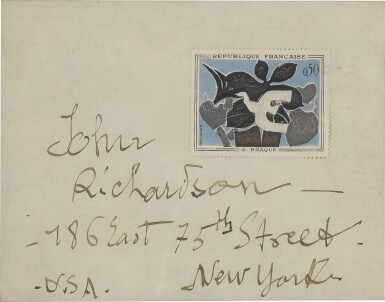 REPUBLIQUE FRANCAISE
0,50
G. BRAQUE
John
Richardson —
- 186 East 75th Street.
- U.S.A. New York